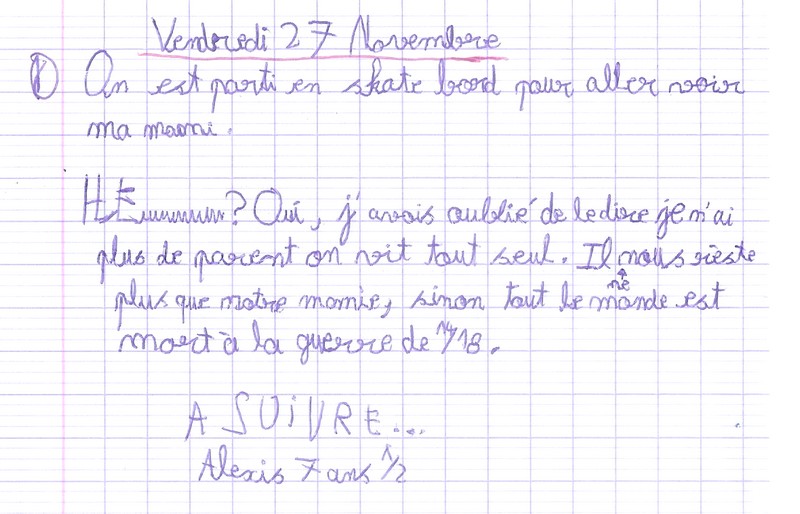 Vendredi 27 Novembre
① On est parti en skate bord pour aller voir
ma mami.
HEuuuuuuu? Oui, j'avais oublié de le dire je n'ai
plus de parent on vit tout seul. Il ne nous reste
plus que notre mamie, sinon tout le monde est
mort à la guerre de 14/18.
A SUiVRE...
Alexis 7 ans 1/2